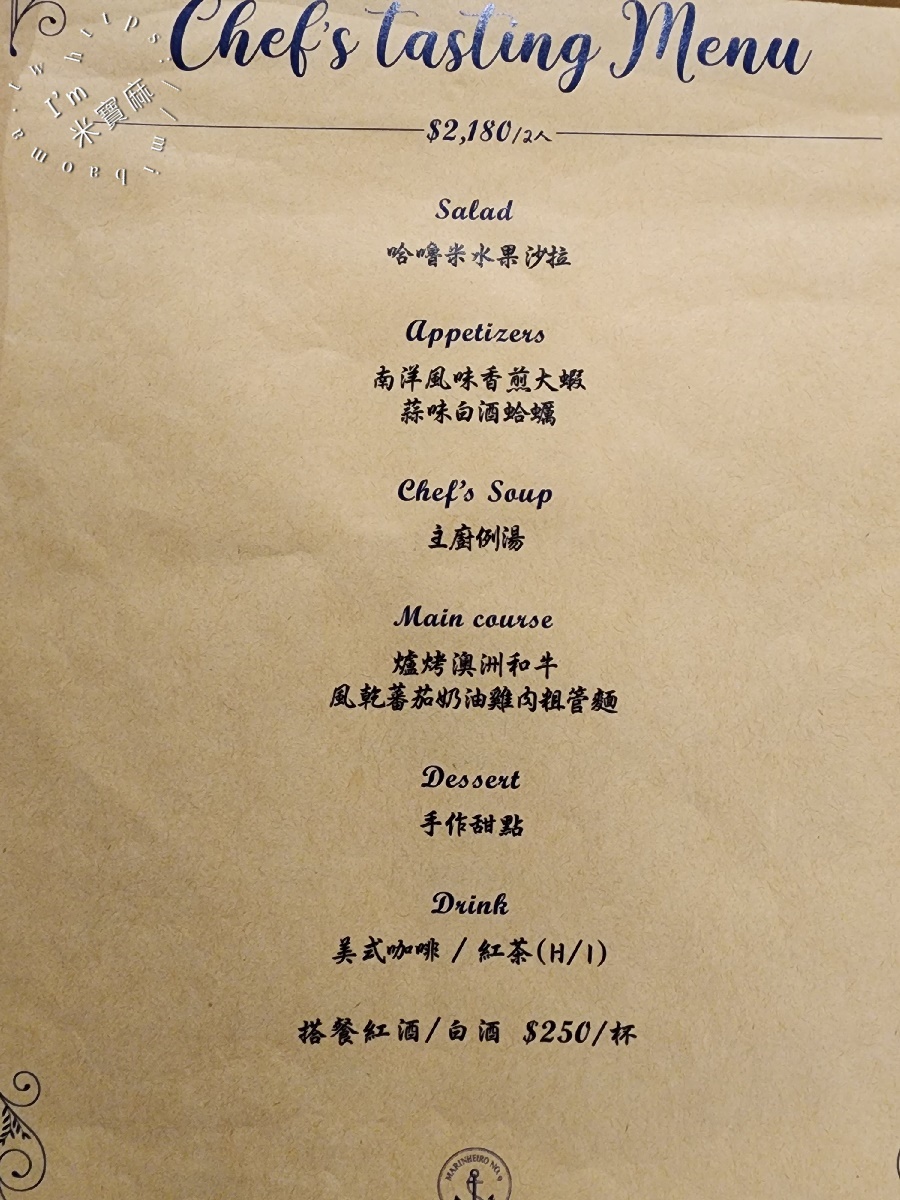 Chef's tasting Menu
$2,180/2人
I'm
米寶麻
Salad
哈嚕米水果沙拉
Appetizers
南洋風味香煎大蝦
蒜味白酒蛤蠣
Chef's Soup
主廚例湯
Main course
爐烤澳洲和牛
風乾蕃茄奶油雞肉粗管麵
Dessert
手作甜點
Drink
美式咖啡 / 紅茶(H/I)
搭餐紅酒/白酒 $250/杯
MARINHEIRO NO.9